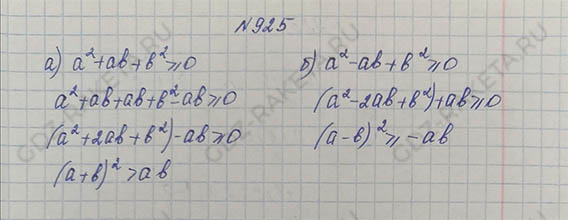 №925
а) a²+ab+b²⩾0
a²+ab+ab+b²-ab⩾0
(a²+2ab+b²)-ab⩾0
(a+b)²>ab
б) a²-ab+b²⩾0
(a²-2ab+b²)+ab⩾0
(a-b)²⩾-ab
GDZ-RAKETA.RU